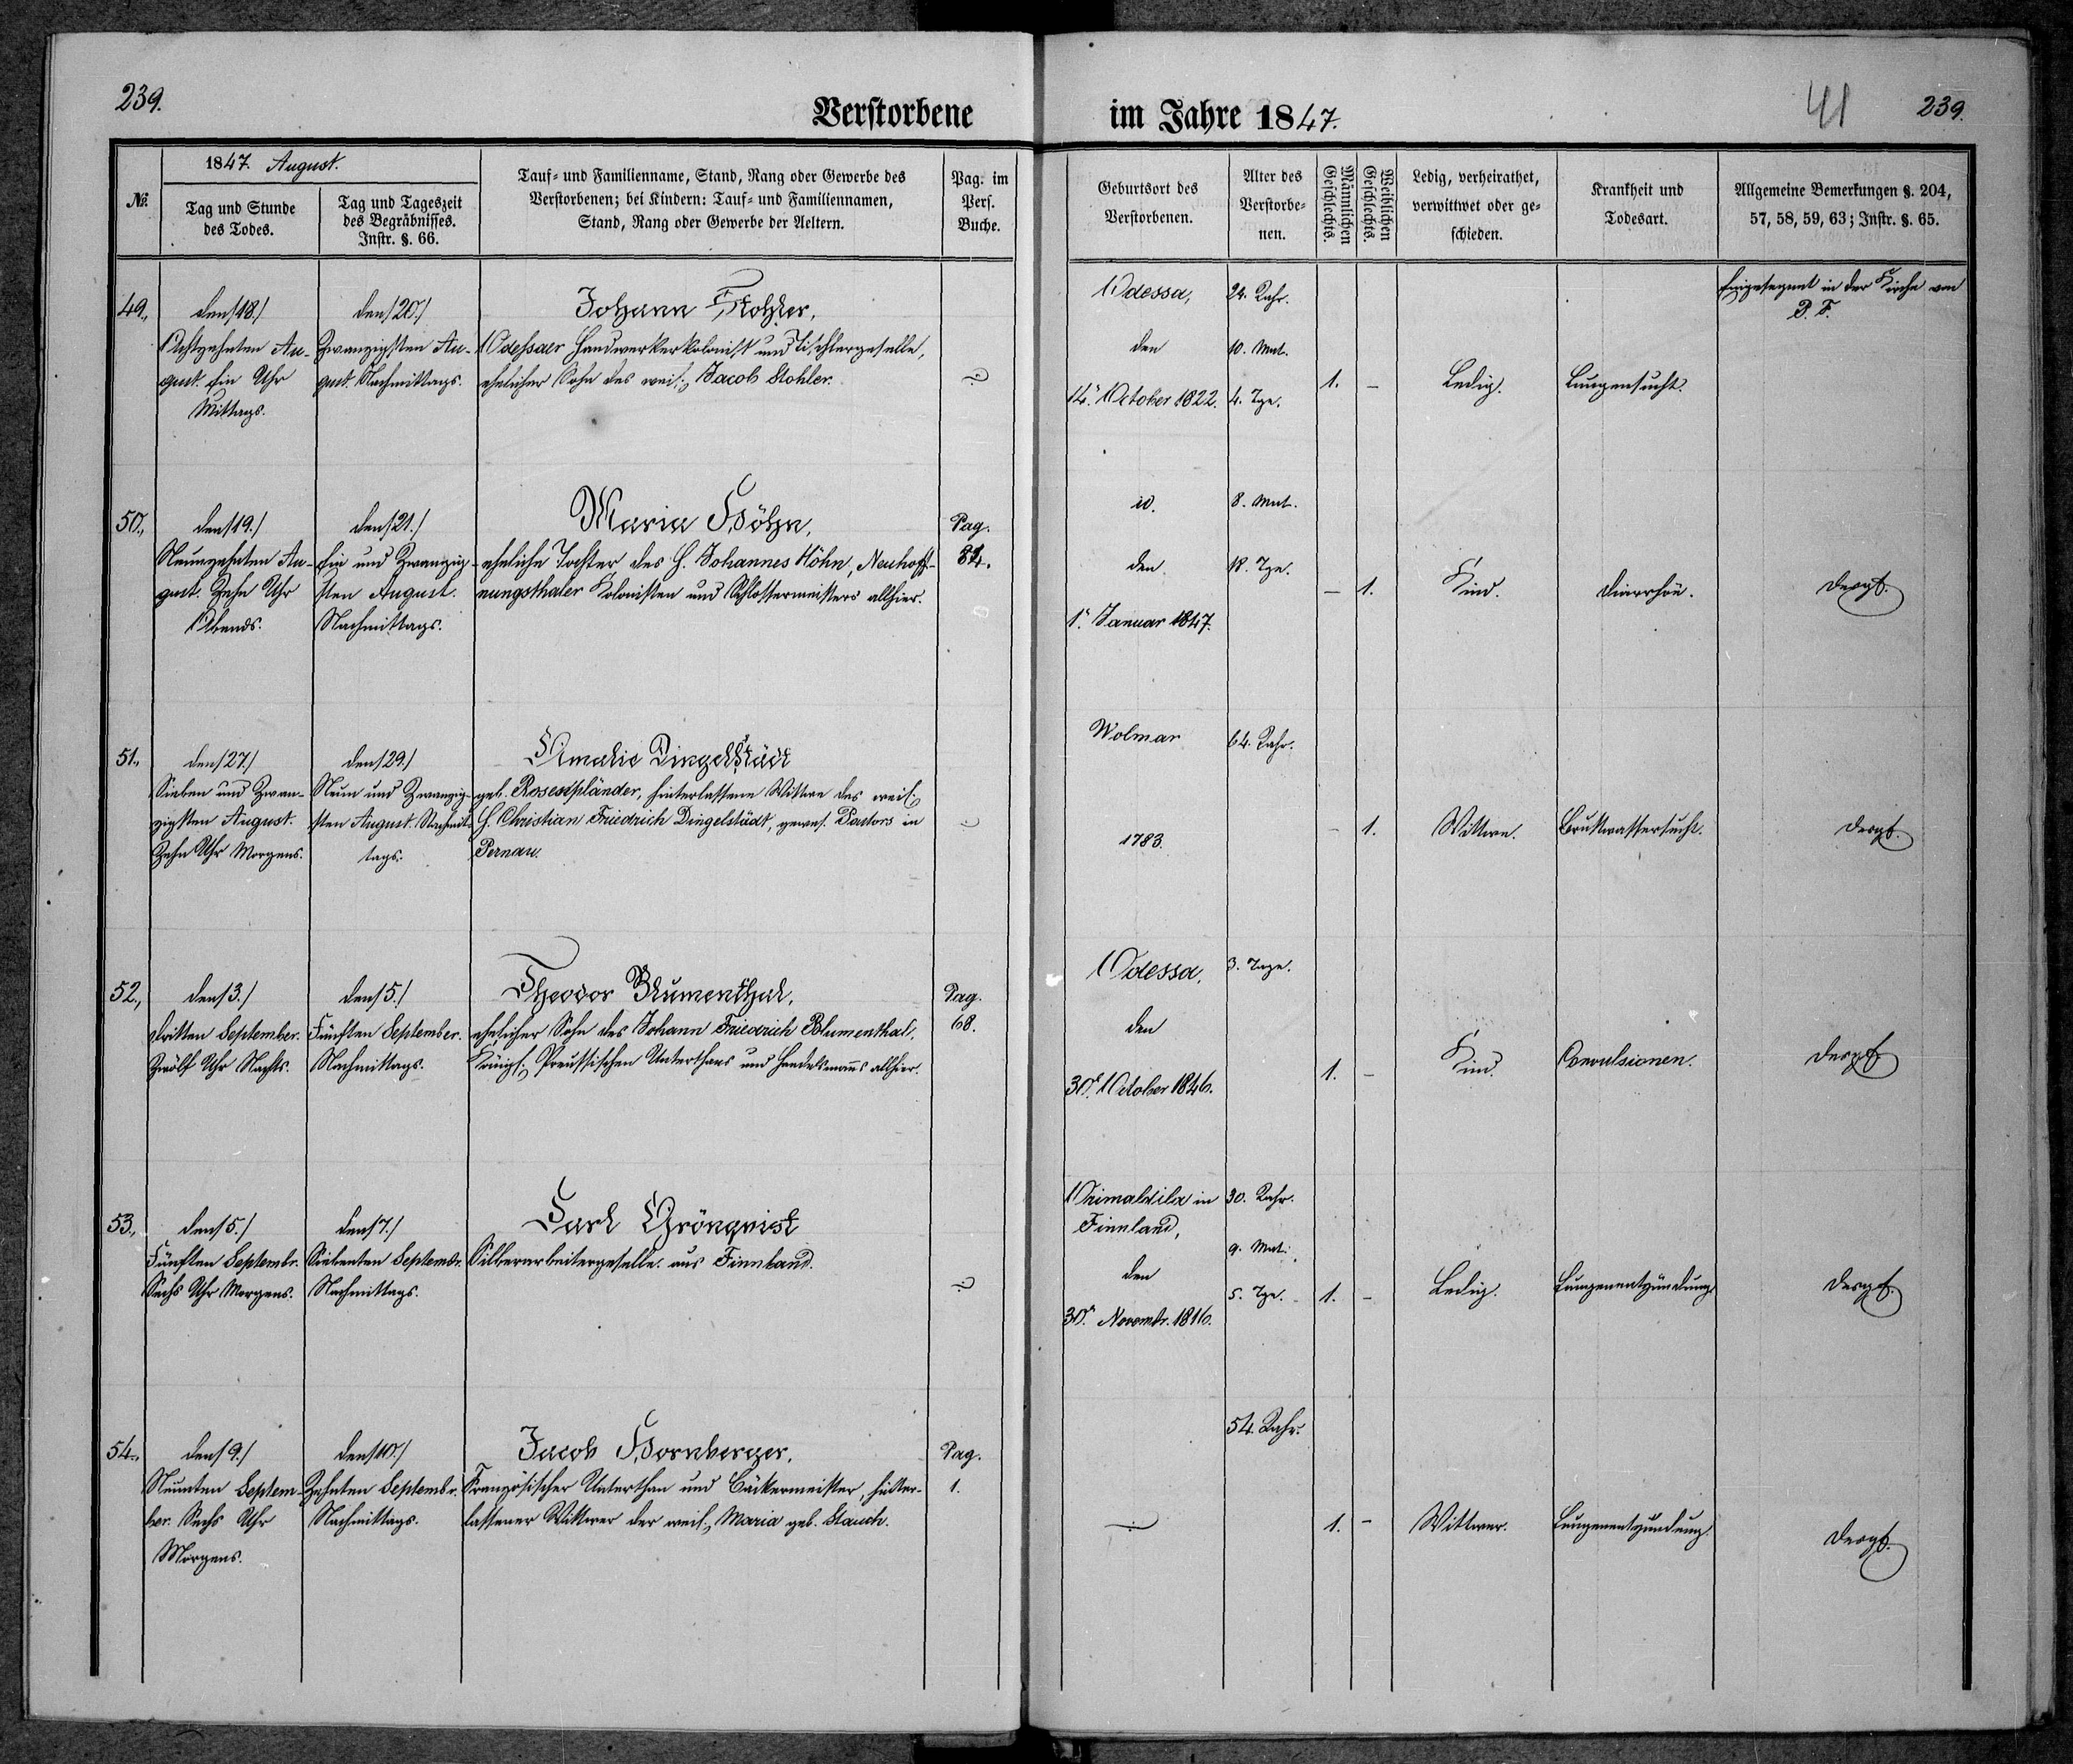 239.
Verstorbene
im Jahre 1847.
41
239.
№.
1847. August.
Tag und Stunde
des Todes.
Tag und Tageszeit
des Begräbnisses.
Instr. §. 66.
Tauf- und Familienname, Stand, Rang oder Gewerbe des
Verstorbenen; bei Kindern: Tauf- und Familiennamen,
Stand, Rang oder Gewerbe der Aeltern.
Pag. im
Pers.
Buche.
Geburtsort des
Verstorbenen.
Alter des
Verstorbe-
nen.
Männlichen
Geschlechts.
Weiblichen
Geschlechts.
Ledig, verheirathet,
verwittwet oder ge-
schieden.
Krankheit und
Todesart.
Allgemeine Bemerkungen §. 204,
57, 58, 59, 63; Instr. §. 65.
49.,
den /18./
Achtzehnten Au-
gust. Ein Uhr
Mittags.
den /20./
Zwanzigsten Au-
gust. Nachmittags.
Johann Stohler,
Odessaer Handwerkerkolonist und Tischlergeselle,
ehelicher Sohn des weil. Jacob Stohler.
Odessa,
den
14. October 1822.
24. Jahr.
10. Mnt.
4. Tge.
1.
–
Ledig.
Lungensucht.
Eingesegnet in der Kirche von
P. F.
50.,
den /19./
Neunzehnten Au-
gust. Zehn Uhr
Abends.
den /21./
Ein und Zwanzig-
sten August.
Nachmittags.
Maria Höhn,
eheliche Tochter des H. Johannes Höhn, Neuhoff-
nungsthaler Kolonisten und Schlossermeisters allhier.
Pag.
84.
id.
den
1. Januar 1847.
8. Mnt.
18. Tge.
–
1.
Kind.
Diarrhöe.
desgl.
51.
den /27./
Sieben und Zwan-
zigsten August.
Zehn Uhr Morgens.
den /29./
Neun und Zwanzig-
sten August. Nachmit-
tags.
Amalie Dingelstädt
geb. Rosenpländer, hinterlassene Wittwe des weil.
H. Christian Friedrich Dingelstädt, gewes. Pastors in
Pernau.
Wolmar
1783.
64. Jahr.
–
1.
Wittwe.
Brustwassersucht.
desgl.
52.,
den /3./
Dritten September.
Zwölf Uhr Nachts.
den /5./
Fünften September.
Nachmittags.
Theodor Blumenthal,
ehelicher Sohn des Johann Friedrich Blumenthal,
Königl. Preussischen Unterthans und Handelsmanns allhier.
Pag.
68.
Odessa,
den
30. October 1846.
3. Tage.
1.
–
Kind.
Convulsionen.
desgl.
53.,
den /5./
Fünften Septembr.
Sechs Uhr Morgens.
den /7./
Siebenten Septembr.
Nachmittags.
Carl Grönqvist
Silberarbeitergeselle aus Finnland.
in
Finnland,
den
30. Novembr. 1816.
30. Jahr.
9. Mnt.
5. Tge.
1.
–
Ledig.
Lungenentzündung.
desgl.
54.,
den /9./
Neunten Septem-
ber. Sechs Uhr
Morgens.
den /10./
Zehnten Septembr.
Nachmittags.
Jacob Hornberger,
Französischer Unterthan und Bäckermeister, hinter-
lassener Wittwer der weil. Maria geb. Stauch.
Pag.
1.
54. Jahr.
1.
–
Wittwer.
Lungenentzündung.
desgl.